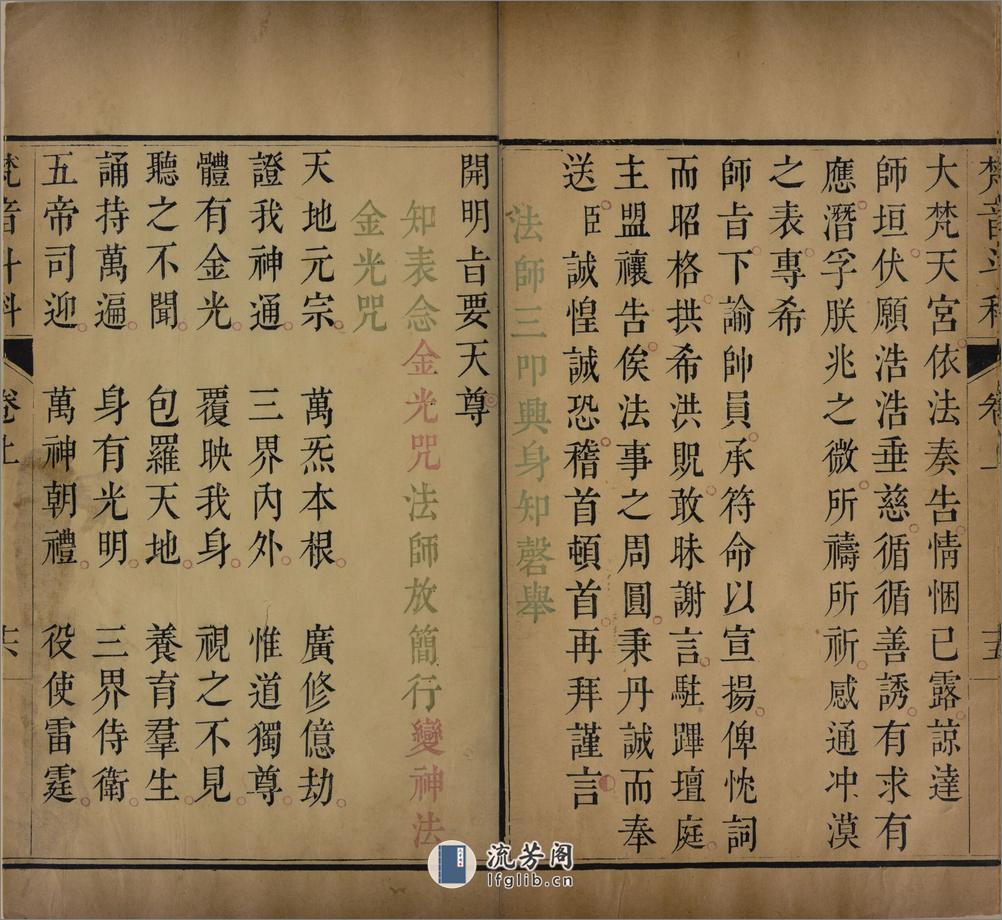 大梵天宮依法奏告情悃已露諒達
師垣伏願浩浩垂慈循循善誘有求有
應潛孚朕兆之微所禱所祈感通沖漠
之表專希
師旨下諭帥員承符命以宣揚俾忱詞
而昭格拱希洪貺敢昧謝言駐蹕壇庭
主盟禳告俟法事之周圓秉丹誠而奉
送臣誠惶誠恐稽首頓首再拜謹言
法師三叩興身知磬舉
開明旨要天尊
知表念金光咒法師放簡行變神法
金光咒
天地元宗 萬炁本根 廣修億劫
證我神通 三界內外 惟道獨尊
體有金光 覆映我身 視之不見
聽之不聞 包羅天地 養育羣生
誦持萬遍 身有光明 三界侍衛
五帝司迎 萬神朝禮 役使雷霆
卷上 十六
流芳阁
lfglib.cn